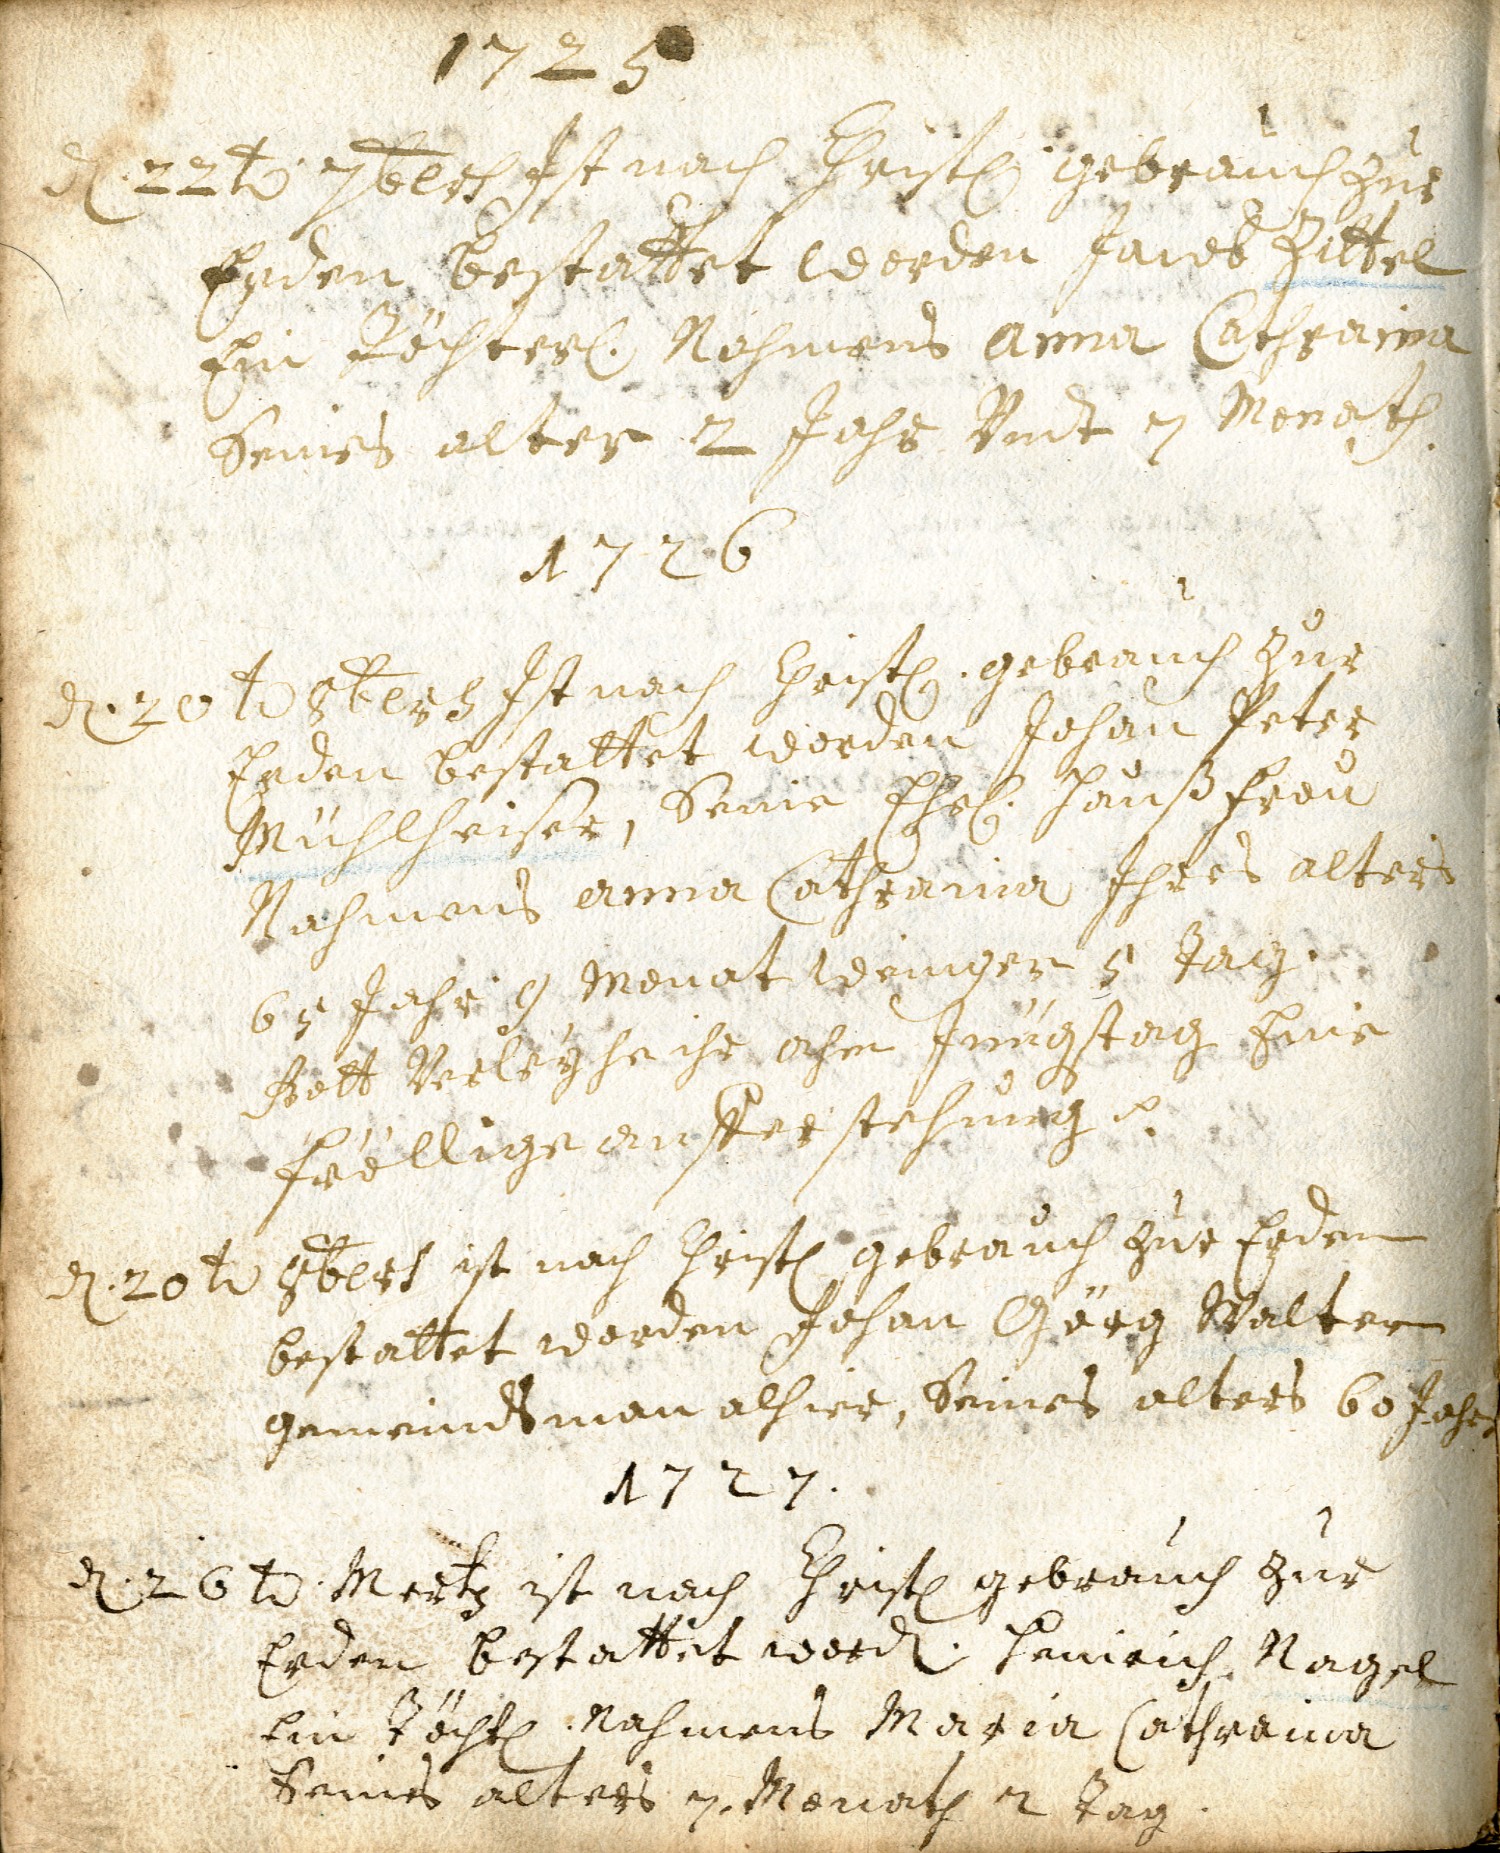 1725
d. 22t 7bris Ist nach Christl. gebrauch zur
Erden bestattet worden Jacob Zittel
Ein Döchterl. Nahmens anna Cathraina
Seines alter 2 Jahr Vndt 7 Monath.
1726
d. 20t 8bris Ist nach Christl. gebrauch zur
Erden bestattet worden Johan Peter
Mühlheiser, Seine Ehel. haußfrau
Nahmens anna Cathraina Ihres alters
65 Jahr 9 Monat weniger 5 Tag.
Gott Verleyhe ihr ahm Jüngstag Eine
fröllige aufferstehung
d. 20t 8bris ist nach Christl gebrauch zur Erden
bestattet worden Johan Görg Walter
gemeindsman alhier, Seines alters 60 Jahr
1727.
d. 26t. Mertz ist nach Christl gebrauch zur
Erden bestattet word. Henrich Nagel
Ein Döchtl. Nahmens Maria Cathraina
Seines alters 7. Monath 2 Tag.